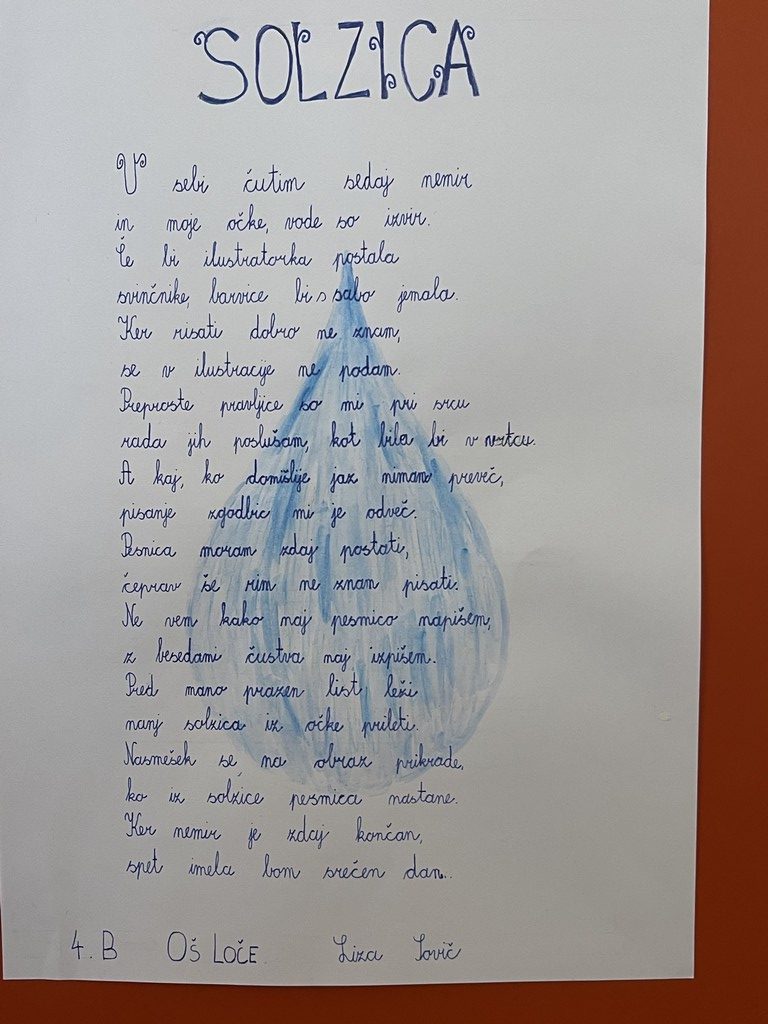 SOLZICA
V sebi čutim sedaj nemir
in moje očke, vode so izvir.
Če bi ilustratorka postala
svinčnike, barvice bi s sabo jemala.
Ker risati dobro ne znam,
se v ilustracije ne podam.
Preproste pravljice so mi pri srcu
rada jih poslušam, kot bila bi v vrtcu.
A kaj, ko domišlije jaz nimam preveč,
pisanje zgodbic mi je odveč.
Pesnica moram zdaj postati,
čeprav še rim ne znam pisati.
Ne vem kako naj pesmico napišem,
z besedami čustva naj izpišem.
Pred mano prazen list leži
nanj solzica iz očke prileti.
Nasmešek se na obraz prikrade,
ko iz solzice pesmica nastane.
Ker nemir je zdaj končan,
spet imela bom srečen dan..
4. B OŠ LOČE Liza Sovič